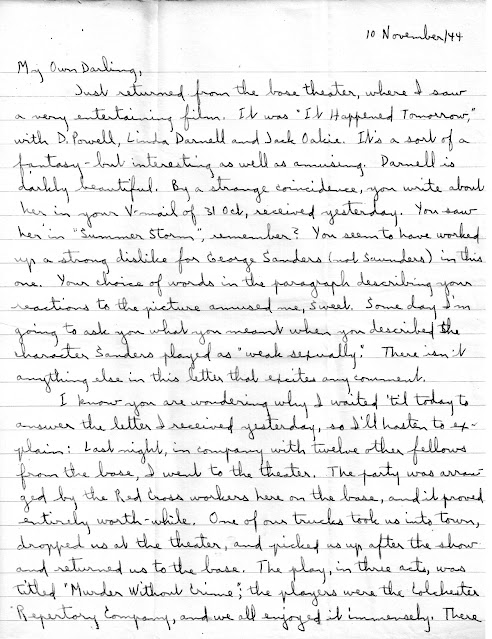 10 November/44
My Own Darling,
Just returned from the base theater, where I saw
a very entertaining film. It was "It Happened Tomorrow,"
with D. Powell, Linda Darnell and Jack Oakie. It's a sort of a
fantasy - but interesting as well as amusing. Darnell is
darkly beautiful. By a strange coincidence, you write about
her in your V-mail of 31 Oct, received yesterday. You saw
her in "Summer Storm", remember? You seem to have worked
up a strong dislike for George Sanders (not Saunders) in this
one. Your choice of words in the paragraph describing your
reactions to the picture amused me, Sweet. Some day I'm
going to ask you what you meant when you described the
character Sanders played as "weak sexually." There isn't
anything else in this letter that excites any comment.
I know you are wondering why I waited 'til today to
answer the letter I received yesterday, so I'll hasten to ex-
plain: Last night, in company with twelve other fellows
from the base, I went to the theater. The party was arran-
ged by the Red Cross workers here on the base, and it proved
entirely worth-while. One of our trucks took us into town,
dropped us at the theater, and picked us up after the show
and returned us to the base. The play, in three acts, was
titled "Murder Without Crime"; the players were the Colchester
Repertory Company, and we all enjoyed it immensely. There